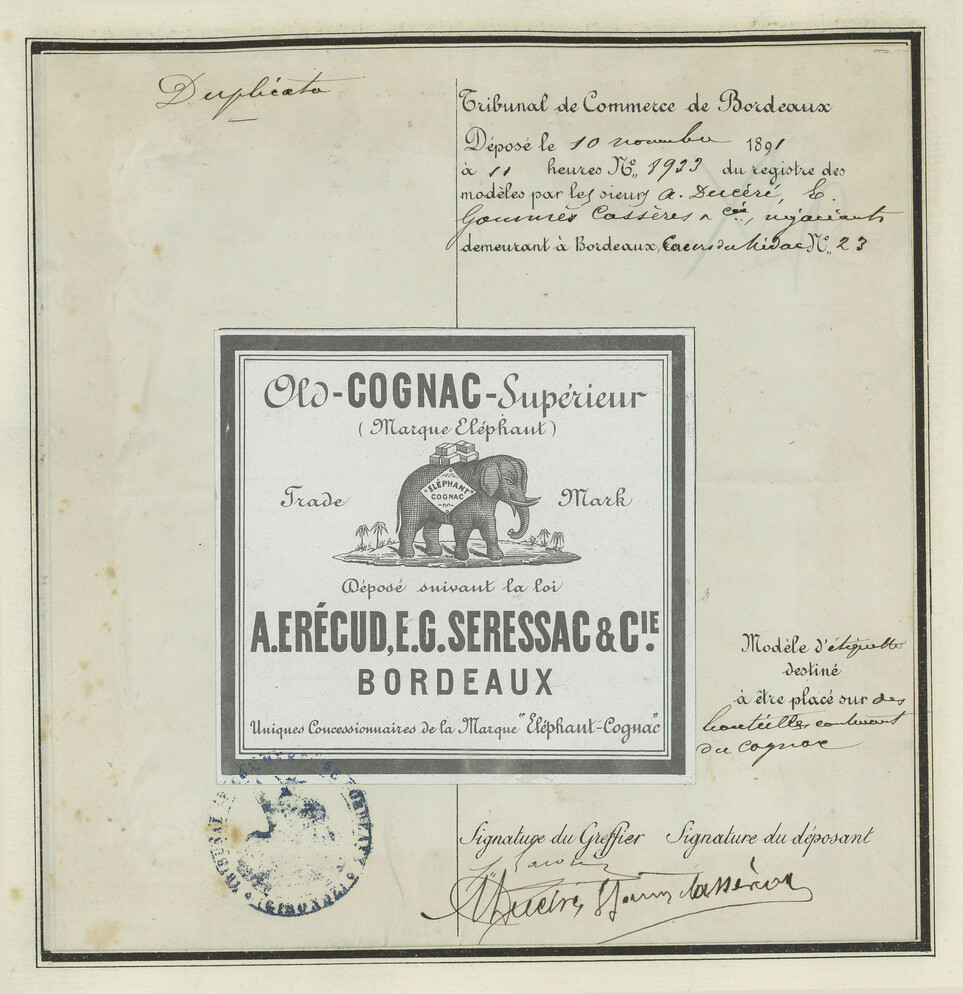 Duplicata
Tribunal de Commerce de Bordeaux
Déposé le 10 novembre 1891
à 11 heures N°. 1933 du registre des
modèles par les sieurs A. Ducéré, E.
Goumès Cassères & Cie, négociants
demeurant à Bordeaux, Cours du Médoc N°. 23
Old-COGNAC-Supérieur
(Marque Eléphant)
"ELÉPHANT"
COGNAC
Trade Mark
Déposé suivant la loi
A.ERÉCUD,E.G.SERESSAC & CIE.
BORDEAUX
Uniques Concessionnaires de la Marque "Eléphant-Cognac"
Modèle d'étiquette
destiné
à être placé sur des
bouteilles contenant
du cognac
TRIBUNAL DE COMMERCE DE BORDEAUX
(GIRONDE)
Signature du Greffier Signature du déposant